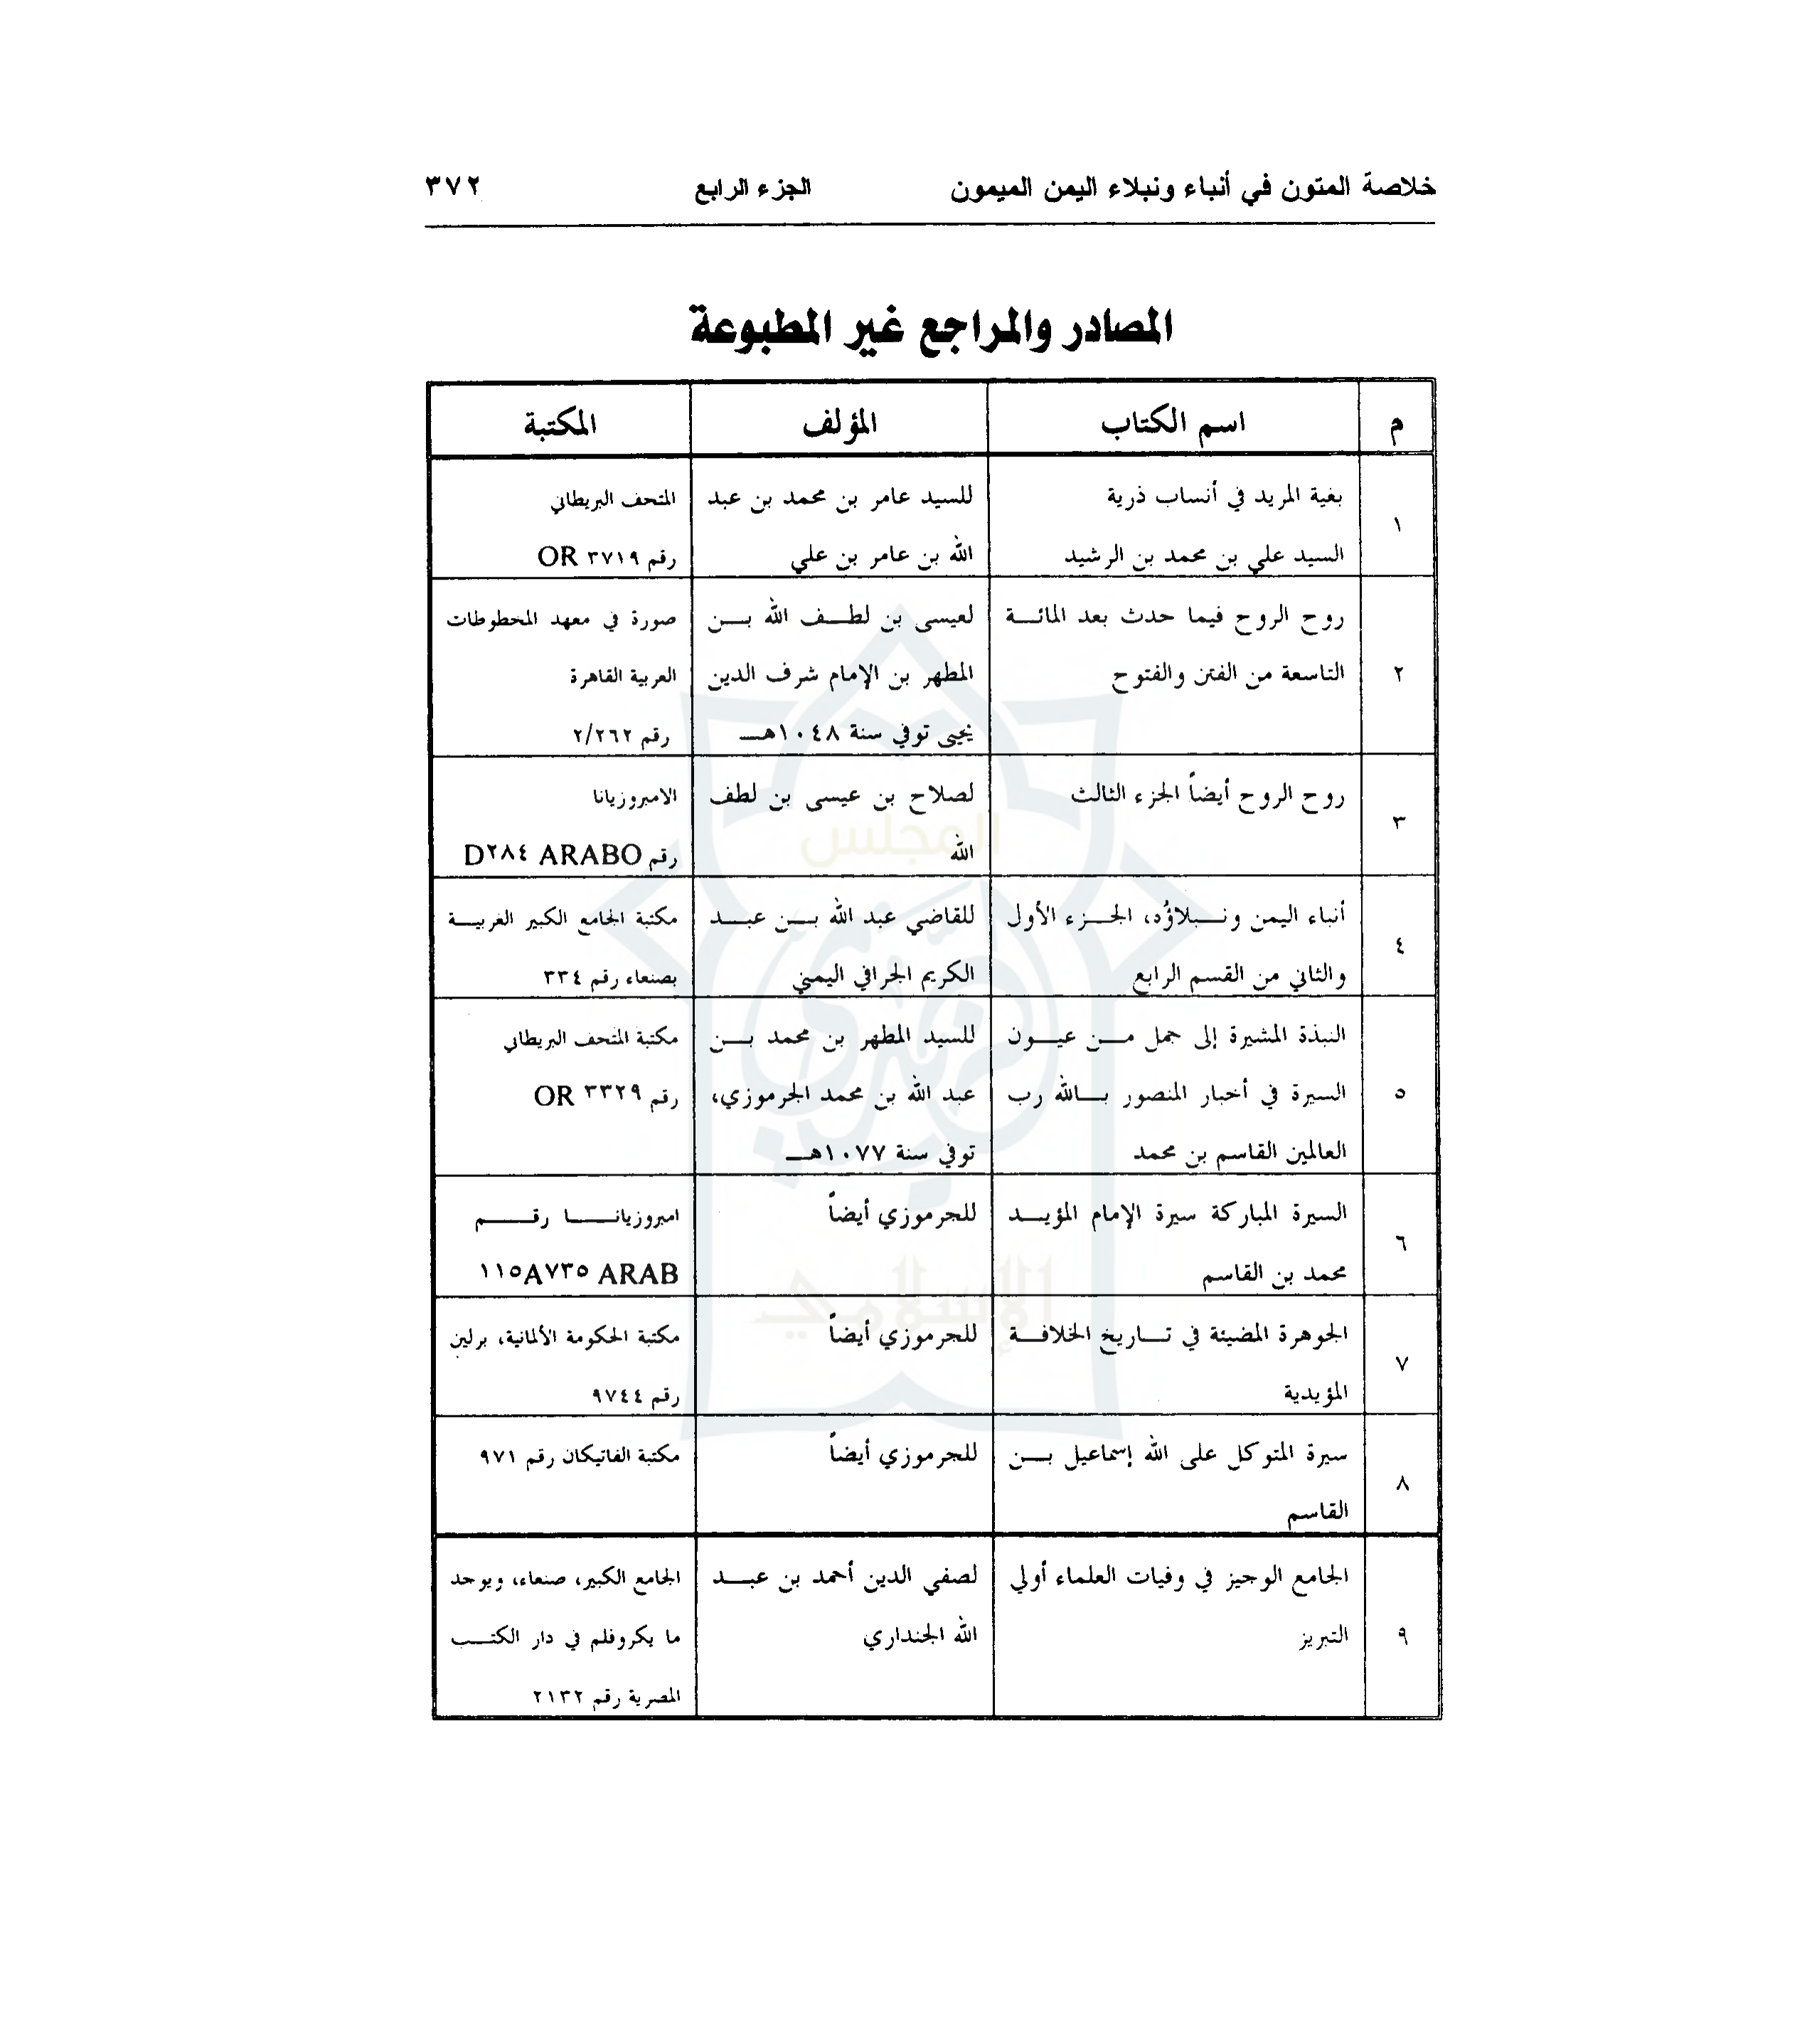 خلاصة المتون في أنباء ونبلاء اليمن الميمون الجزء الرابع ٣٧٢
المصادر والمراجع غير المطبوعة
م اسم الكتاب المؤلف المكتبة
١
بغية المريد في أنساب ذرية
السيد علي بن محمد بن الرشيد
للسيد عامر بن محمد بن عبد
الله بن عامر بن علي
المتحف البريطاني
رقم OR ٣٧١٩
٢
روح الروح فيما حدث بعد المائة
التاسعة من الفتن والفتوح
لعيسى بن لطف الله بن
المطهر بن الإمام شرف الدين
يحيى توفي سنة ١٠٤٨هـ
صورة في معهد المخطوطات
العربية القاهرة
رقم ٢/٢٦٢
٣
روح الروح أيضاً الجزء الثالث
لصلاح بن عيسى بن لطف
الله
الامبروزيانا
رقم D٢٨٤ ARABO
٤
أنباء اليمن ونبلاؤد، الجزء الأول
والثاني من القسم الرابع
للقاضي عبد الله بن عبد
الكريم الجرافي اليمني
مكتبة الجامع الكبير الغربية
بصنعاء رقم ٣٣٤
٥
النبذة المشيرة إلى جمل من عيون
السيرة في أخبار المنصور بالله رب
العالمين القاسم بن محمد
للسيد المطهر بن محمد بن
عبد الله بن محمد الجرموزي،
توفي سنة ١٠٧٧هـ
مكتبة المتحف البريطاني
رقم OR ٣٣٢٩
٦
السيرة المباركة سيرة الإمام المؤيد
محمد بن القاسم
للجرموزي أيضاً
امبروزيانا رقم
١١٥A٧٣٥ ARAB
٧
الجوهرة المضيئة في تاريخ الخلافة
المؤيدية
للجرموزي أيضاً
مكتبة الحكومة الألمانية، برلين
رقم ٩٧٤٤
٨
سيرة المتوكل على الله إسماعيل بن
القاسم
للجرموزي أيضاً
مكتبة الفاتيكان رقم ٩٧١
٩
الجامع الوجيز في وفيات العلماء أولي
التبريز
لصفي الدين أحمد بن عبد
الله الجنداري
الجامع الكبير، صنعاء، ويوجد
ما يكروفلم في دار الكتب
المصرية رقم ٢١٣٢
المجلس
الزيدي
الإسلامي